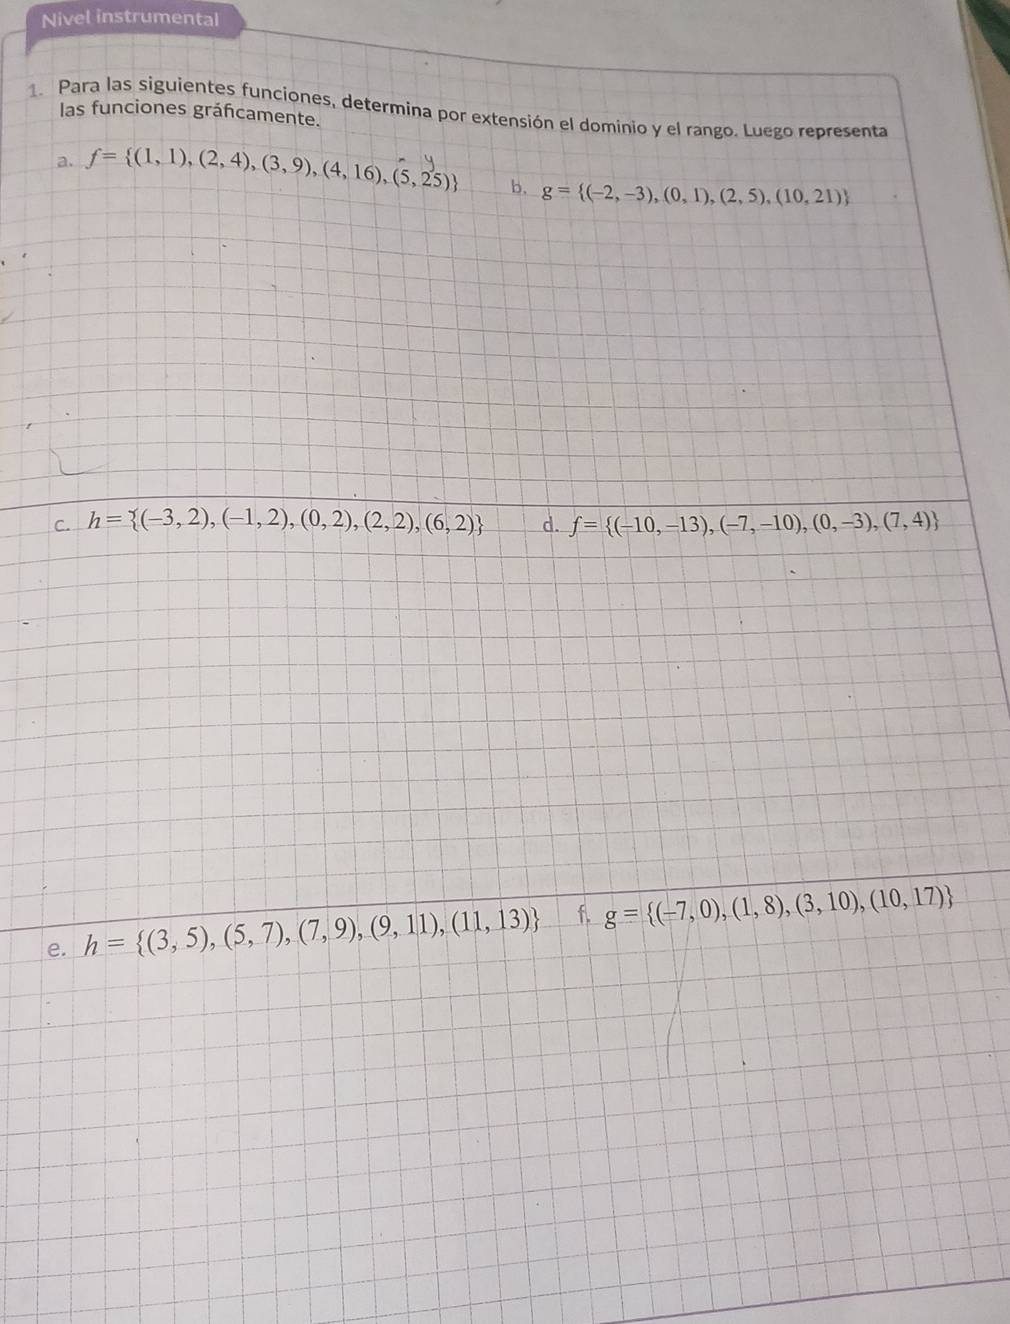 Nivel instrumental
1. Para las siguientes funciones, determina por extensión el dominio y el rango. Luego representa
las funciones gráficamente.
y
a. f = {(1, 1), (2, 4), (3, 9), (4, 16), (5, 25)} b. g = {(−2, −3), (0, 1), (2, 5), (10, 21)}
c. h = {(−3, 2), (−1, 2), (0, 2), (2, 2), (6, 2)} d. f = {(−10, −13), (−7, −10), (0, −3), (7, 4)}
e. h = {(3, 5), (5, 7), (7, 9), (9, 11), (11, 13)} f. g = {(−7, 0), (1, 8), (3, 10), (10, 17)}